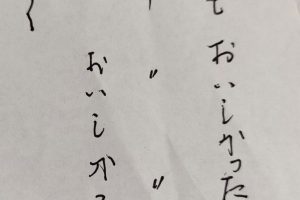 て おいしかった
〃 〃
おいしか